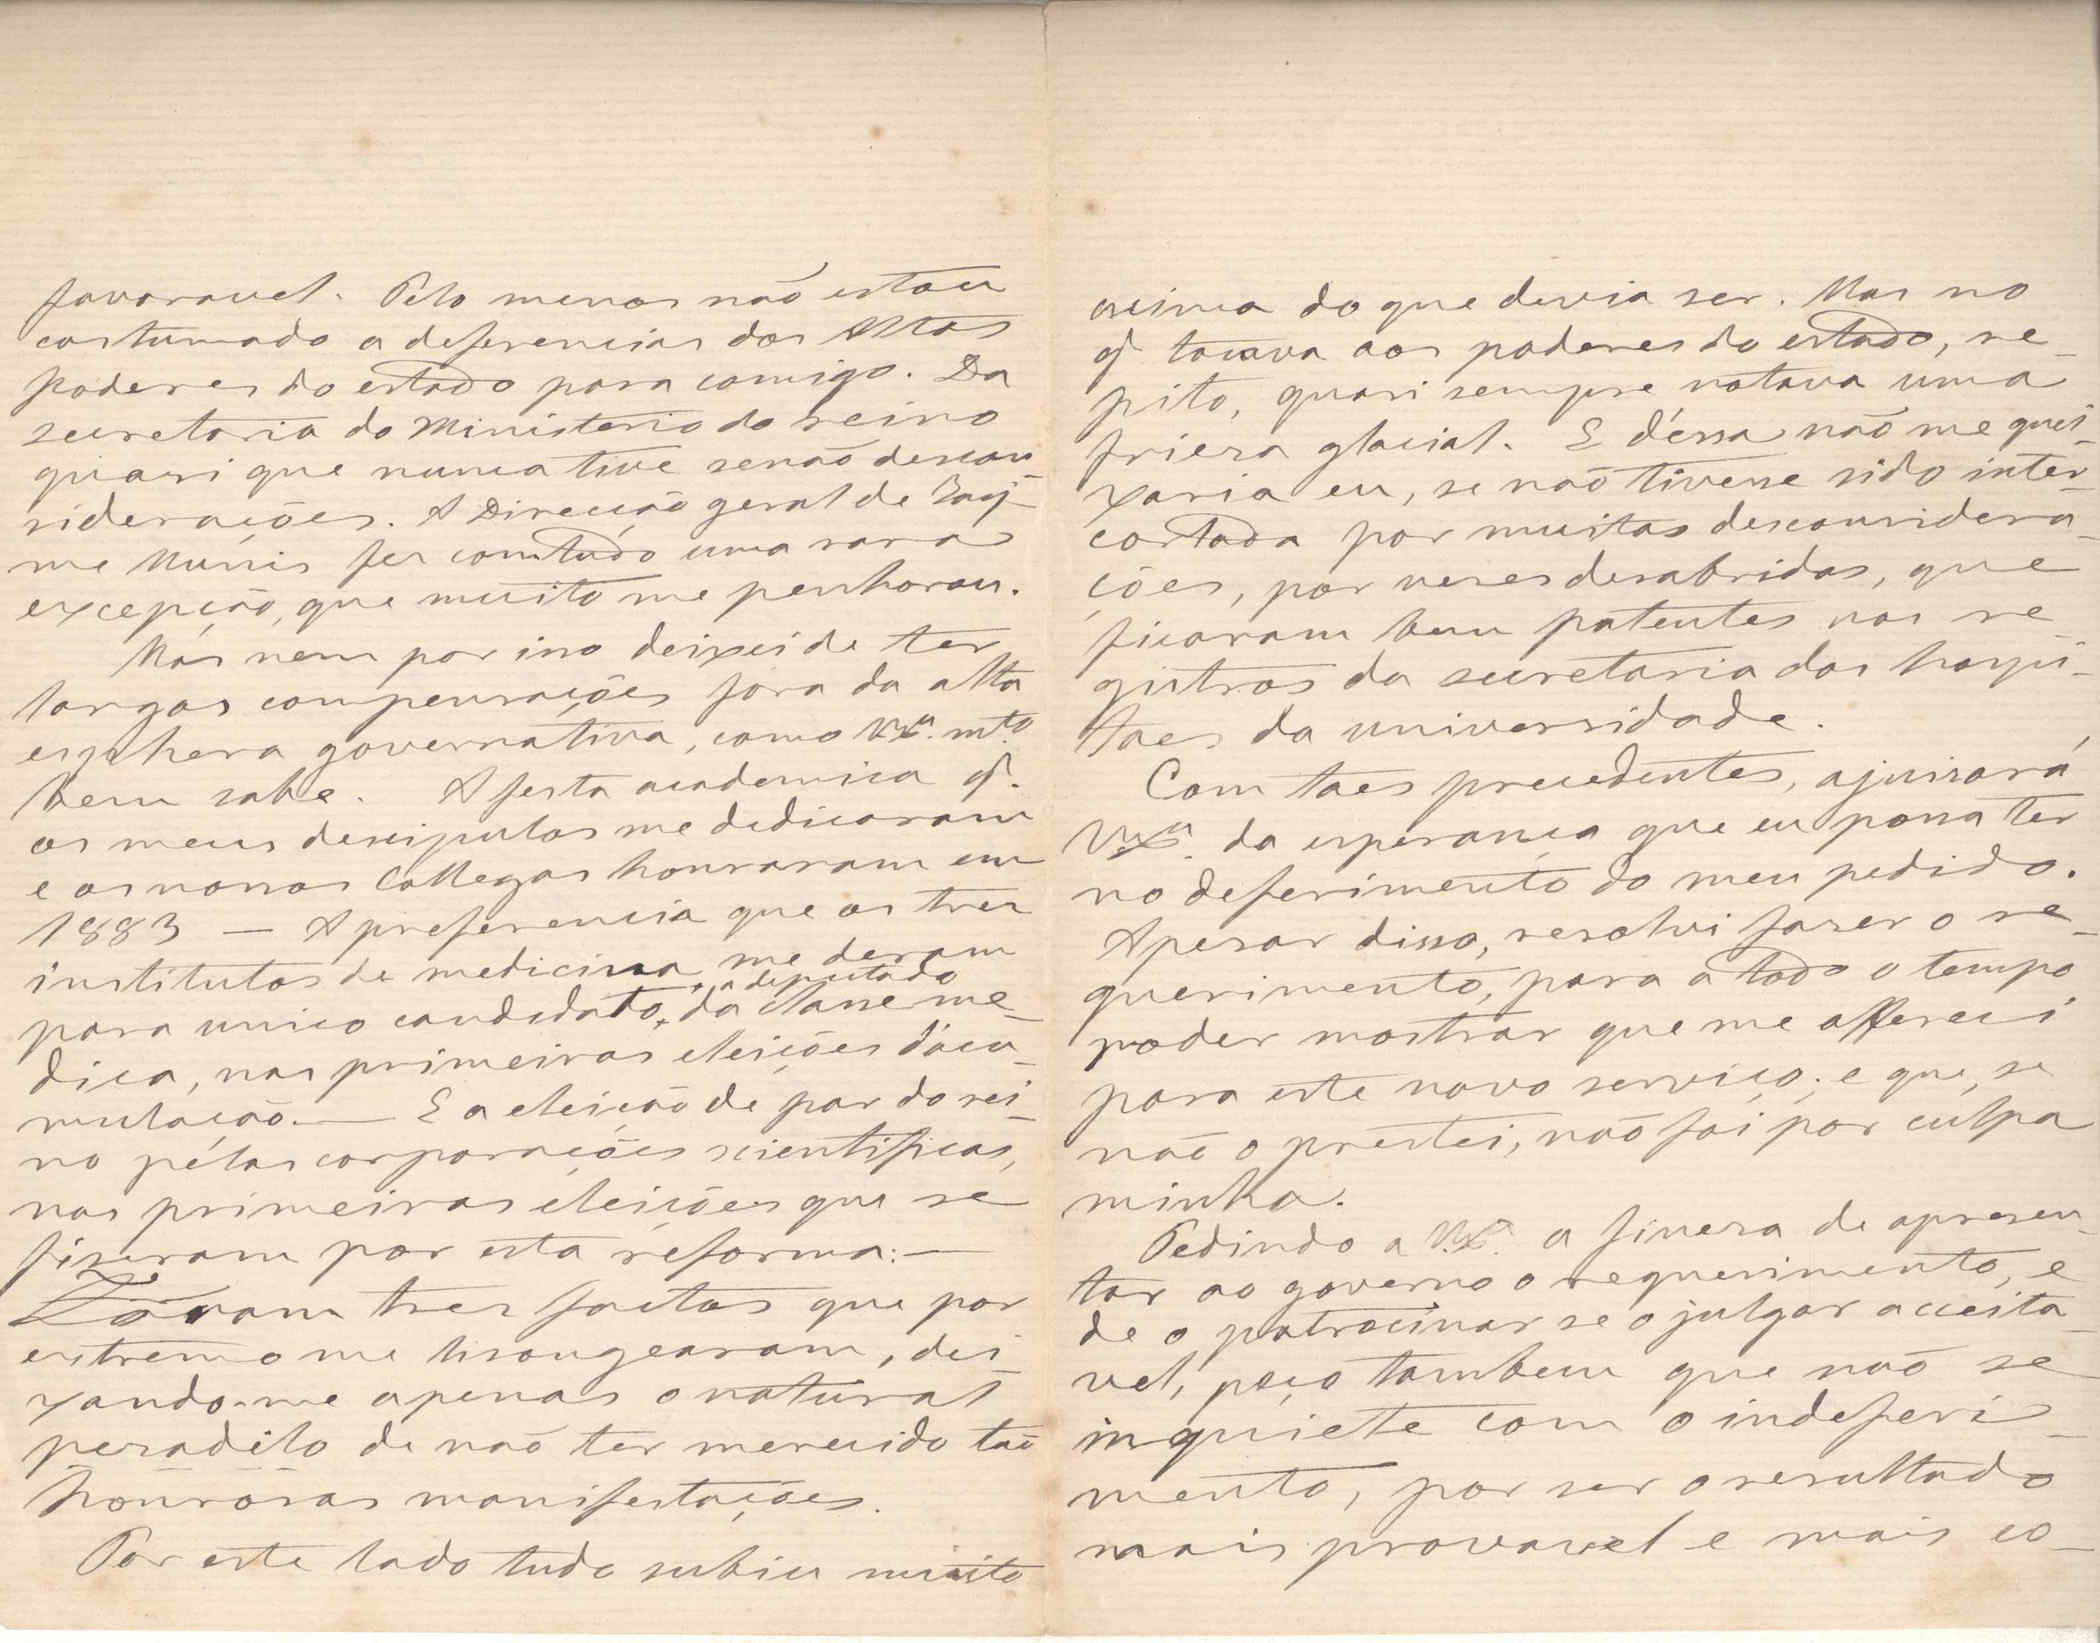 favoravel. Pelo menos não estou
costumado a deferencias dos Altos
poderes do estado para comigo. Da
secretaria do Ministerio do reino
quasi que nunca tive senão descon-
siderações. A Direcção geral de
me fez comtudo uma rara
excepção, que muito me penhorou.
Mas nem por isso deixei de ter
largas compensações fora da alta
esphera governativa, como V.Exª. mto
bem sabe. A festa academica q.
os meus descipulos me dedicaram
e os nossos Collegas honraram em
1883 — A preferencia que os tres
institutos de medicina me deram
para unico candidato, a deputado da classe me-
dica, nas primeiras eleições d'accu-
mulação. — E a eleição de par do rei-
no pélas corporações scientificas,
nas primeiras eleições que se
fizeram por esta reforma: —
Fóram tres factos que por
extremo me lisongearam, dei
xando-me apenas o natural
pezadêlo de não ter merecido tão
honrosas manifestações.
Por este lado tudo subiu muito
acima do que devia ser. Mas no
q̃ tocava aos poderes do estado, re-
pito, quasi sempre notava uma
frieza glacial. E d'éssa não me quei-
xaria eu, se não tivesse sido inter-
cortada por muitas desconsidera-
ções, por vezes desabridas, que
ficaram bem patentes nos re-
gistros da secretaria dos hospi-
taes da universidade.
Com taes precedentes, ajuizará
V.Exª. da esperança que eu possa ter
no deferimento do meu pedido.
Apesar disso, resolvi fazer o re-
querimento, para a todo o tempo
poder mostrar que me offereci
para este novo serviço; e que, se
não o prestei, não foi por culpa
minha.
Pedindo a V.Exª. a fineza de apresen-
tar ao governo o requerimento, e
de o patrocinar se o julgar acceita-
vel, peço tambem que não se
inquiete com o indeferi-
mento, por ser o resultado
mais provavel e mais co-